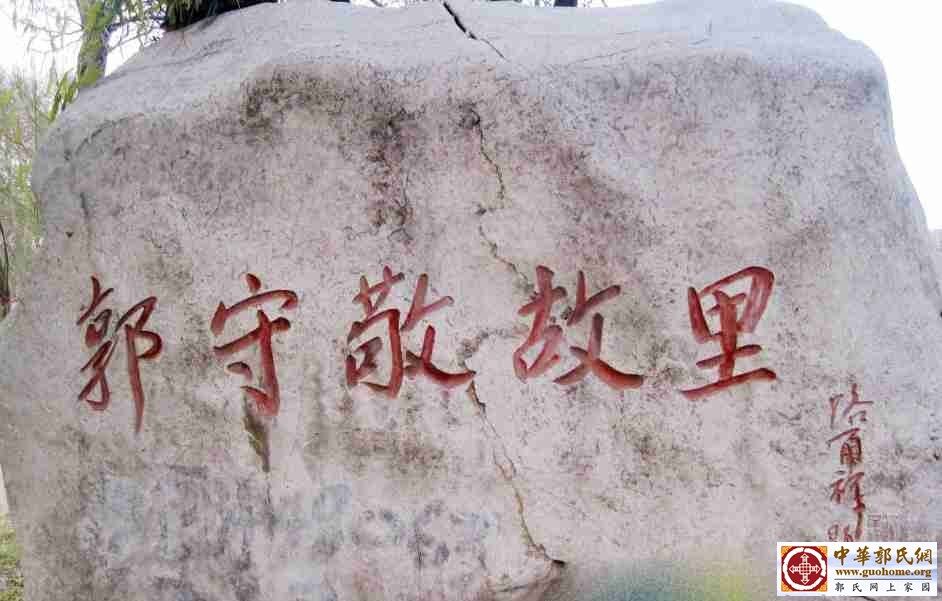 郭守敬故里
路甬祥
中華郭氏網
www.guohome.org
郭氏网上家园